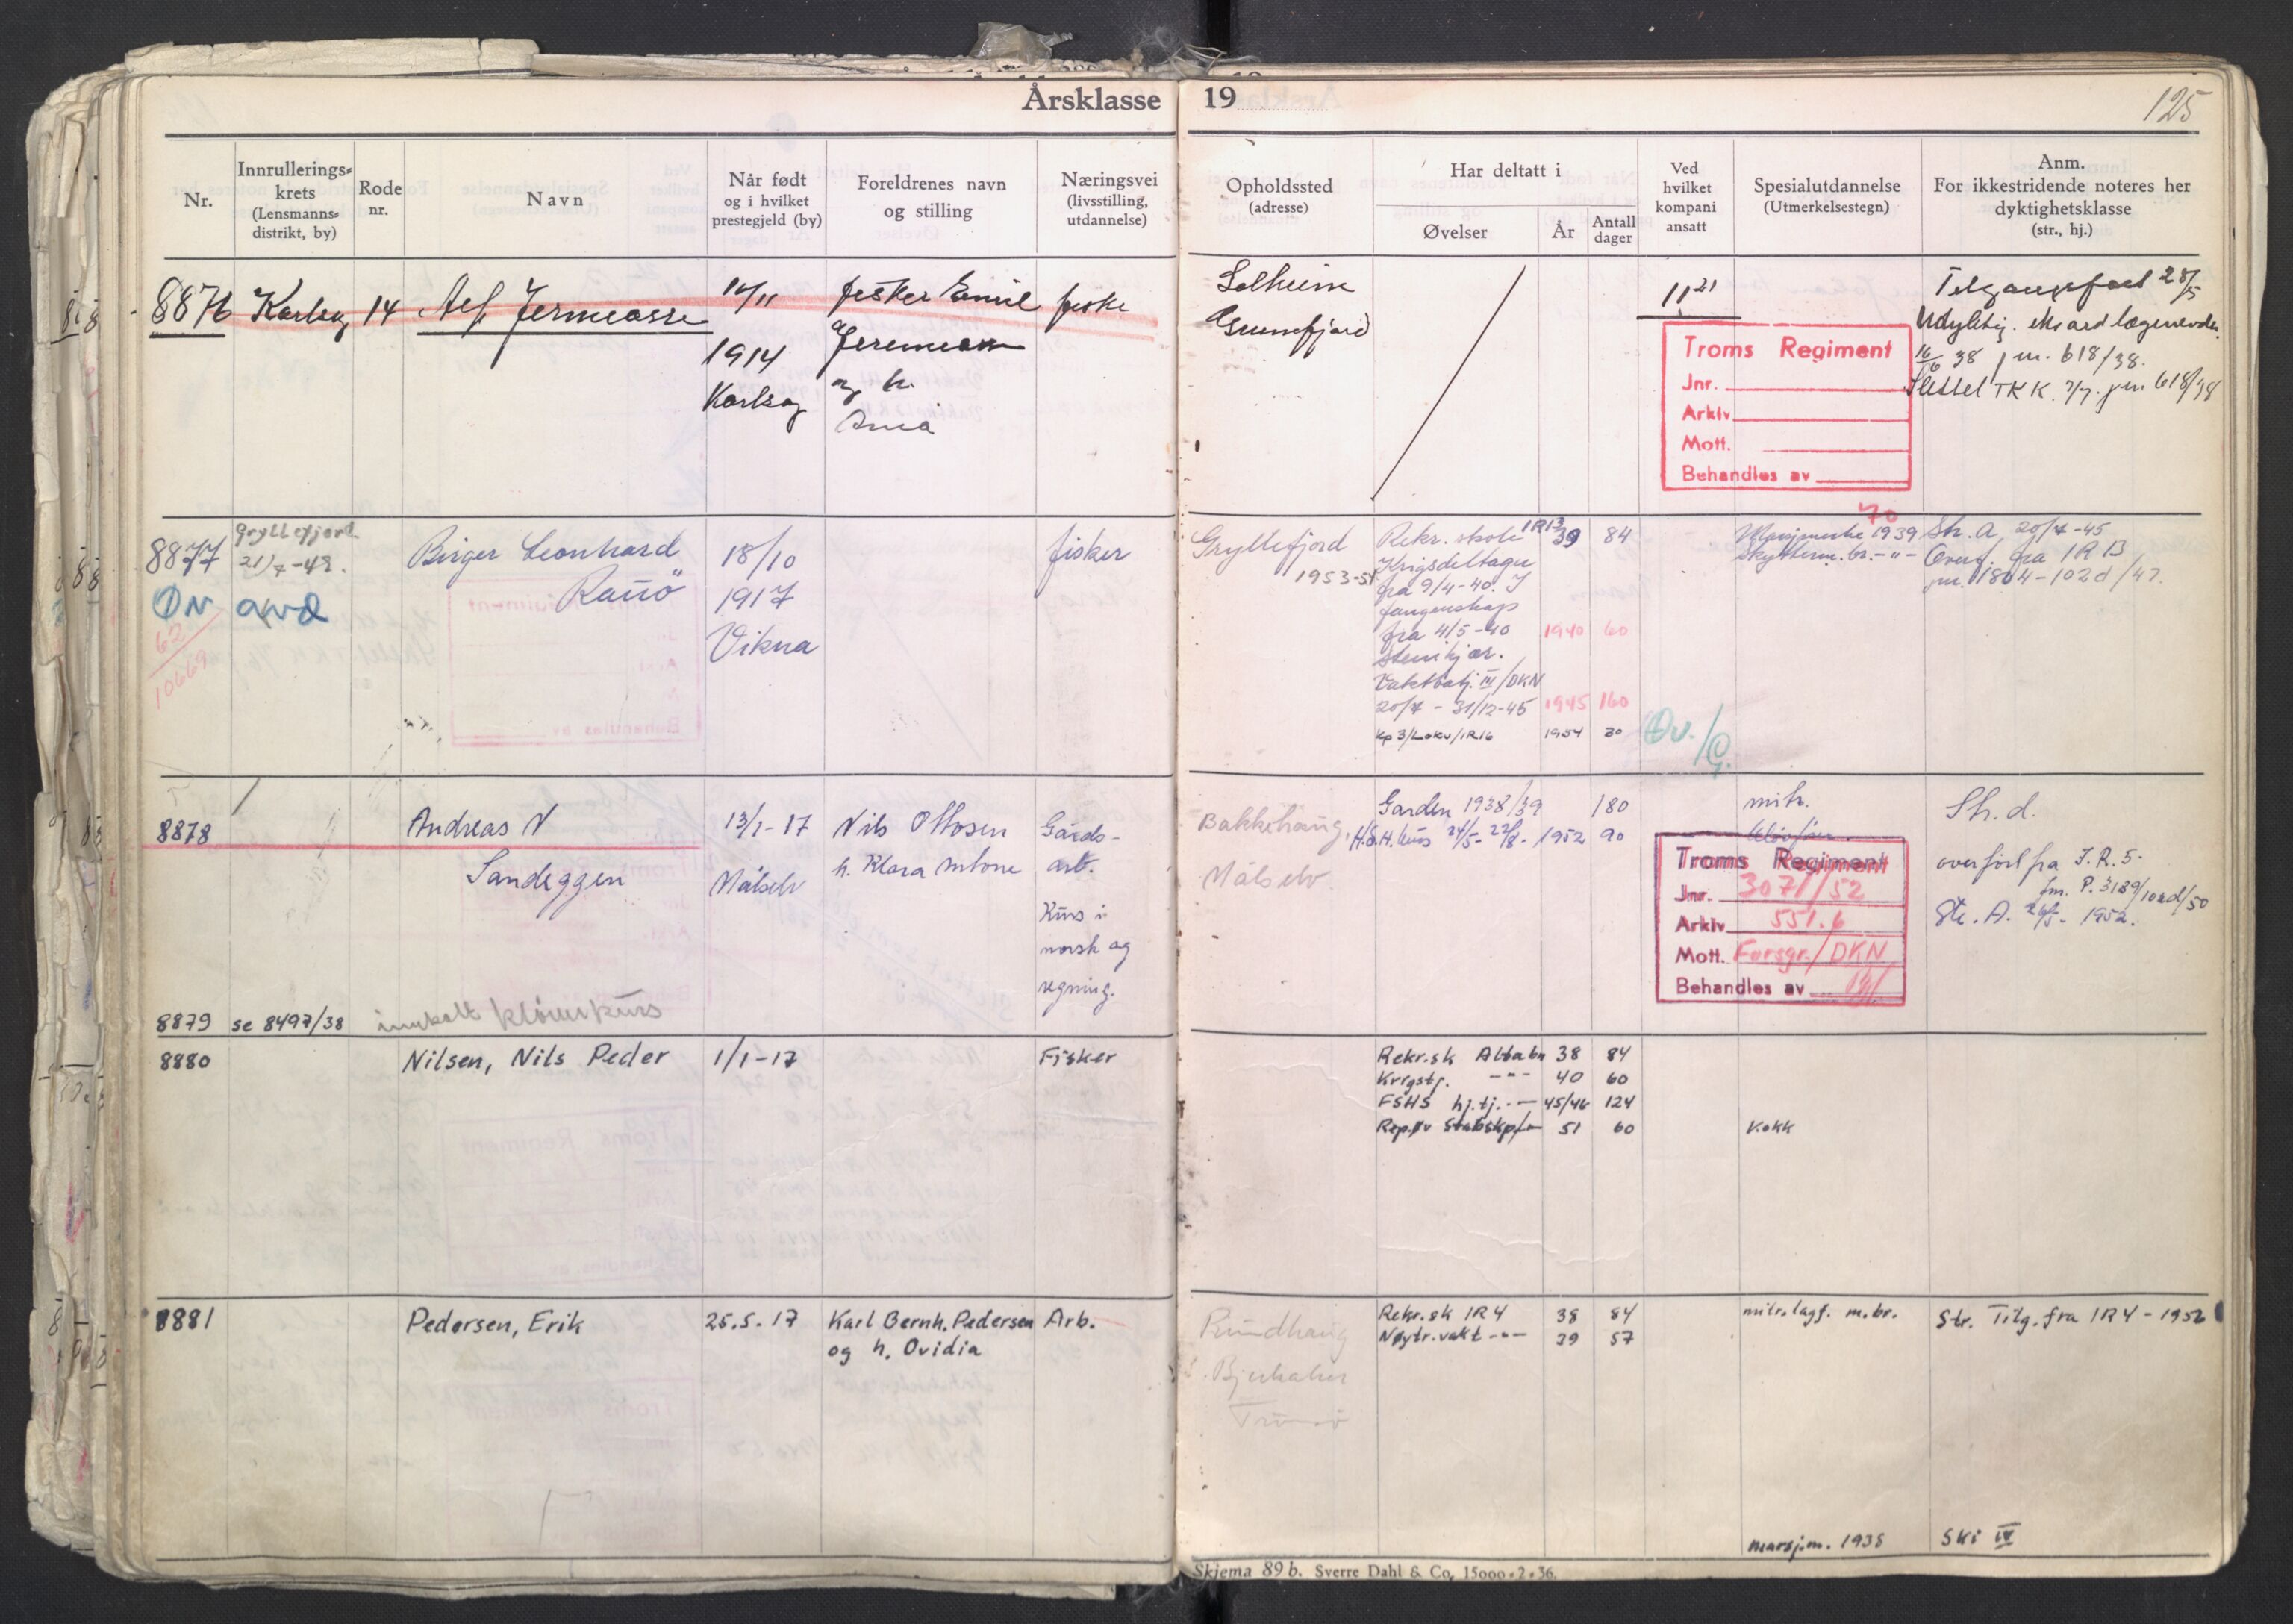 Årsklasse 19
125
Nr.
Innrullerings-
krets
(Lensmanns-
distrikt, by)
Rode
nr.
Navn
Når født
og i hvilket
prestegjeld (by)
Foreldrenes navn
og stilling
Næringsvei
(livsstilling,
utdannelse)
Opholdssted
(adresse)
Har deltatt i
Øvelser
År
Antall
dager
Ved
hvilket
kompani
ansatt
Spesialutdannelse
(Utmerkelsestegn)
Anm.
For ikkestridende noteres her
dyktighetsklasse
(str., hj.)
8876 Karlsøy 14
14/11
1914
Karlsøy
fisker Emil
og h.
fiske
Solheim
Grunnfjord
11
28/5
16/6 38 jnr. 618/38.
Slettet TKK. 7/7. jnr 618/38
Troms Regiment
Jnr.
Arkiv
Mott.
Behandles av
8877
Gryllefjord
21/7-48.
62
10669
Birger Leonhard
Ramö
18/10
1917
Vikna
fisker
Gryllefjord
1953-51
Rekr. skole IR13 39 84
Krigsdeltager
fra 9/4-40. I
fangenskap
fra 4/5-40 1940 60
Steinkjær.
Vaktbatj. III/DKN
20/7 - 31/12-45 1945 160
Kp 3/Lokv/IR16 1954 30
Øv./G.
70
Marsjmerke 1939
Skytterm. br. -"-
Str. A, 20/7-45
Overf. fra IR 13
jnr. 1804-102d/47.
8878
Andreas N
Sandeggen
13/1-17
Målselv
Nils Ottosen
h. Klara Antone
Gårds-
arb.
Kurs i
norsk og
regning.
Bakkehaug,
Målselv.
Garden 1938/39 180
H.S.H. kurs 24/5- 22/8- 1952 90
mitr.
Troms Regiment
Jnr. 3071/52
Arkiv 551.6
Mott. Forsgr./DKN
Behandles av
Str. d.
overført fra I.R. 5-
jnr. P. 3189/102d/50
Str. A. 24/5- 1952.
8879 se 8497/38
innkalt kløverkurs
8880
Nilsen, Nils Peder
1/1-17
Fisker
Rekr.sk Altabn 38 84
Krigstj. -"- 40 60
FSHS hj.tj. -"- 45/46 124
Rep.øv Stabskp/ 51 60
Kokk
8881
Pedersen, Erik
25.5.17
Karl Bernh. Pedersen
og h. Ovidia
Arb.
Rundhaug
Tromsø
Rekr.sk IR4 38 84
Nøytr.vakt -"- 39 57
mitr.lagf. m.br.
Str. Tilg. fra IR4 - 1952
marsjm. 1938
Ski IV
Skjema 89 b. Sverre Dahl & Co, 15000-2-36.